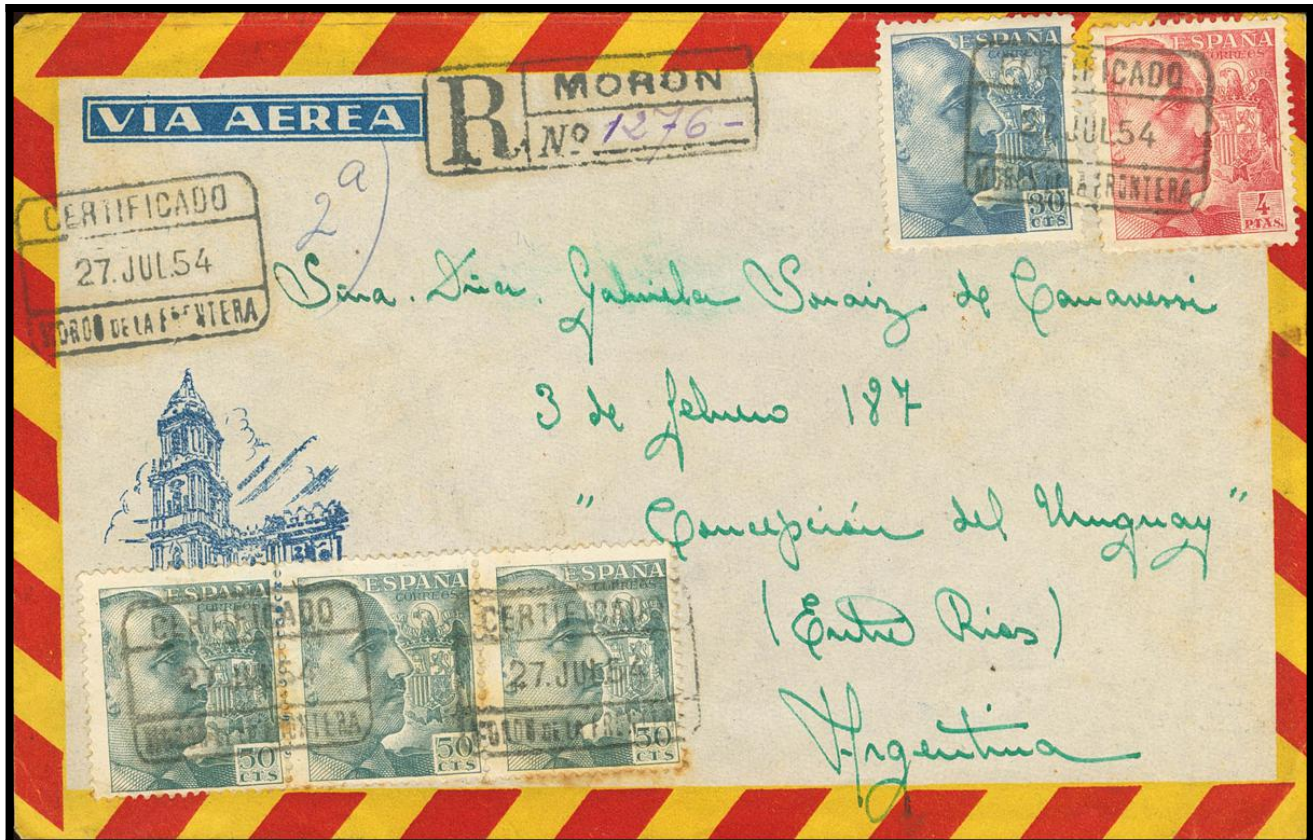 VIA AEREA
R MORON
Nº 1276-
2ª)
ESPAÑA
CORREOS
80
CTS
ESPAÑA
CORREOS
4
PTAS.
CERTIFICADO
27.JUL54
MORON DE LA FRONTERA
CERTIFICADO
27.JUL.54
MORON DE LA FRONTERA
Gabriela de
3 de febrero 187
"Concepción del Uruguay"
(Entre Rios)
Argentina
ESPAÑA
CORREOS
50
CTS
ESPAÑA
CORREOS
50
CTS
ESPAÑA
CORREOS
50
CTS
CERTIFICADO
27.JUL54
MORON DE LA FRONTERA
CERTIFICADO
27.JUL.54
MORON DE LA